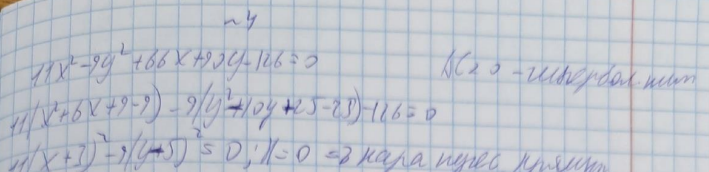 ~4
11x²-9y²+66x+90y-126=0 AC<0 - гипербол. тип
11(x²+6x+9-9) -9(y²-10y+25-25)-126=0
11(x+3)²-9(y-5)²=0; Δ=0 => пара перес прямых